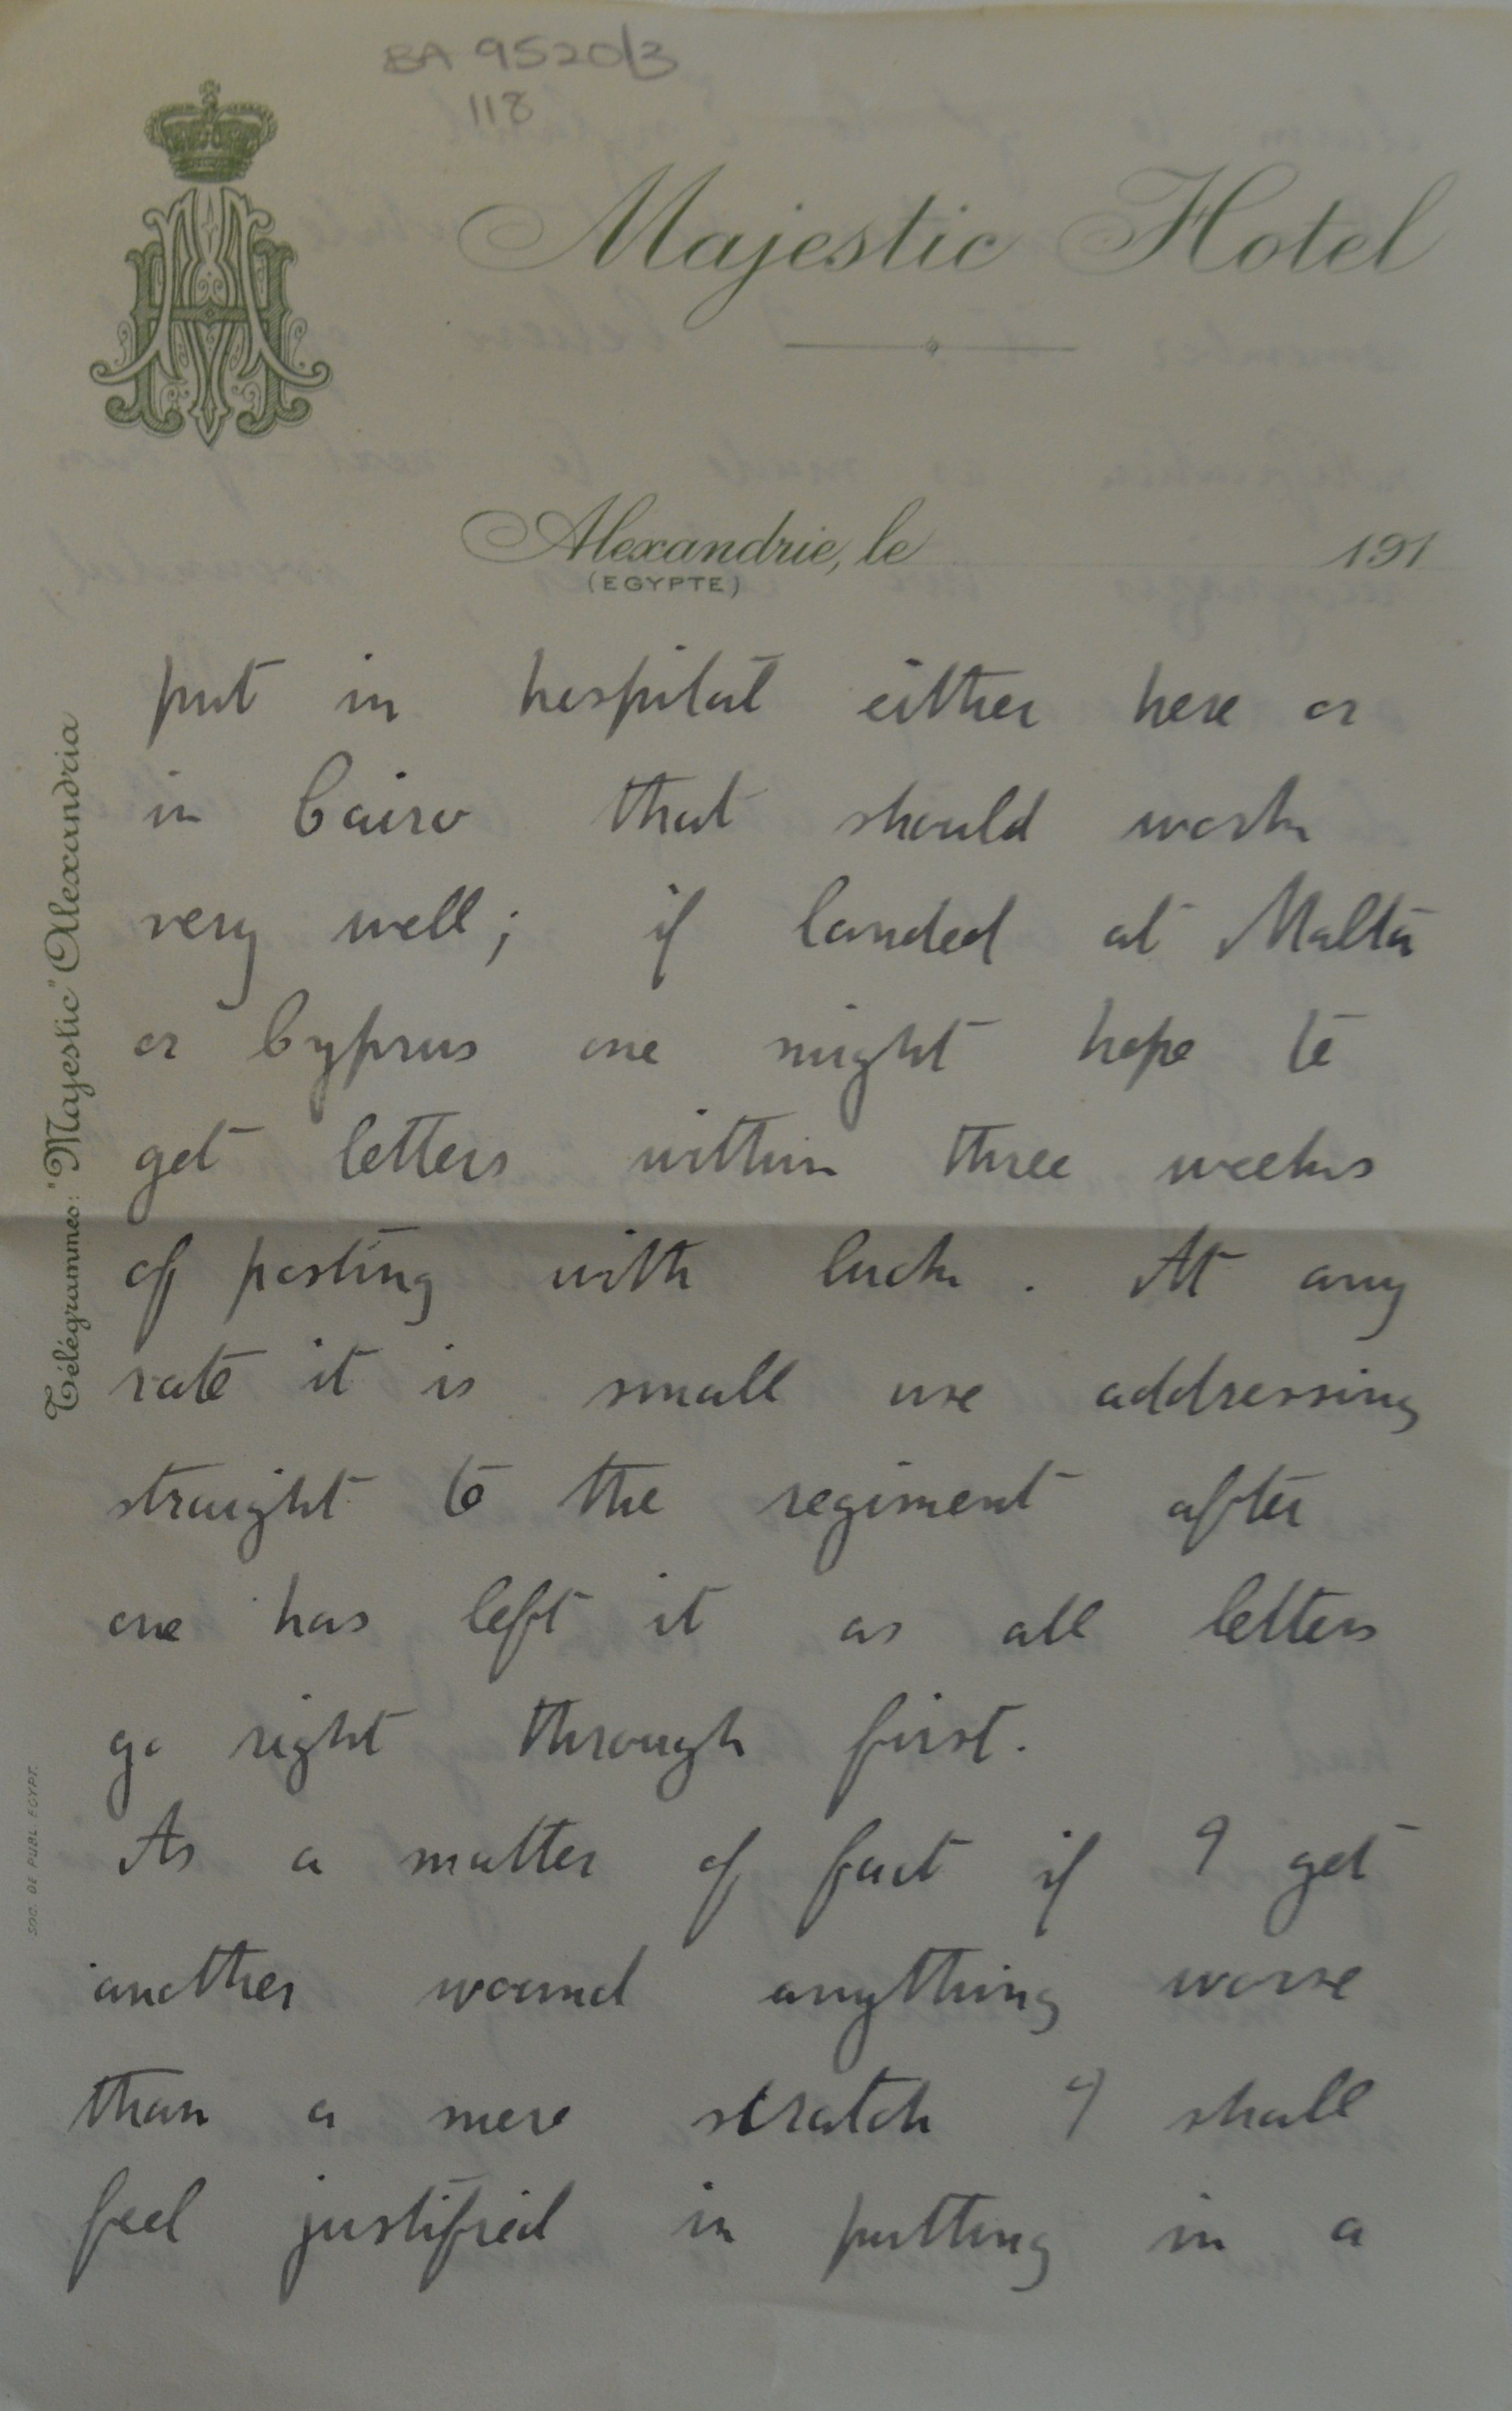 BA 9520/3
118
Majestic Hotel
Alexandrie, le 191
(EGYPTE)
Télégrammes: "Majestic" Alexandria
SOC. DE PUBL. EGYPT.
put in hospital either here or
in Cairo that should work
very well; if landed at Malta
or Cyprus one might hope to
get letters within three weeks
of posting with luck. At any
rate it is small use addressing
straight to the regiment after
one has left it as all letters
go right through first.
As a matter of fact if I get
another wound anything worse
than a mere scratch I shall
feel justified in putting in a